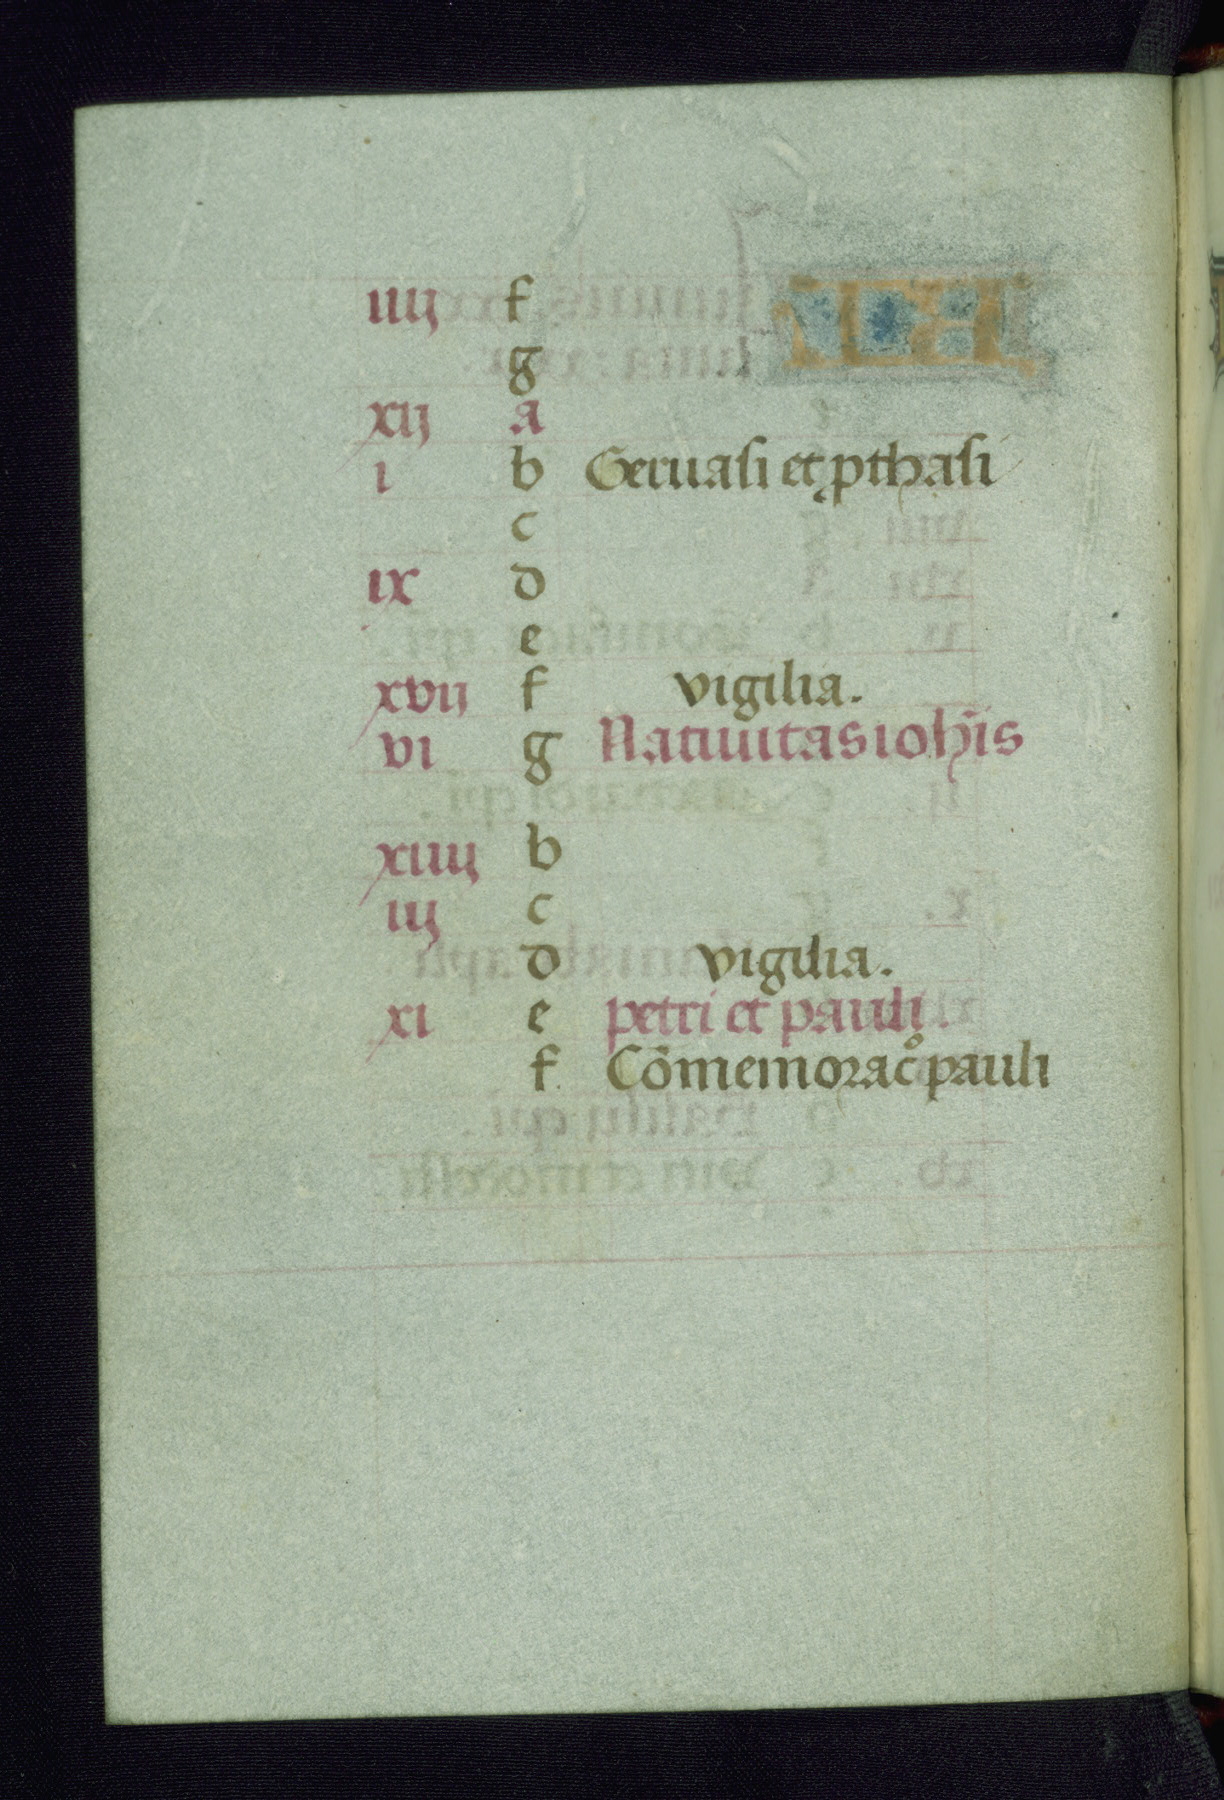 iiij f
g
xij a
i b Geruasi et ꝓthasi
c
ix d
e
xvij f vigilia.
vi g Natiuitas ioh̄is
xiiij b
iij c
d vigilia.
xi e petri et pauli.
f Cōmemoracͦ pauli